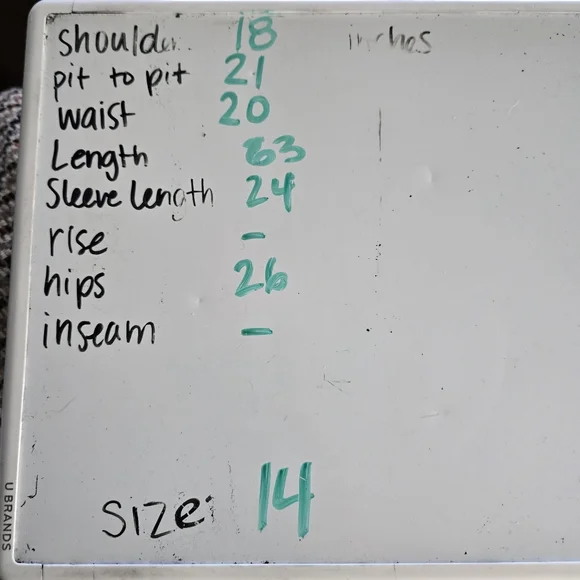 shoulder 18 inches
pit to pit 21
waist 20
Length 63
Sleeve Length 24
rise -
hips 26
inseam -
size: 14
U BRANDS